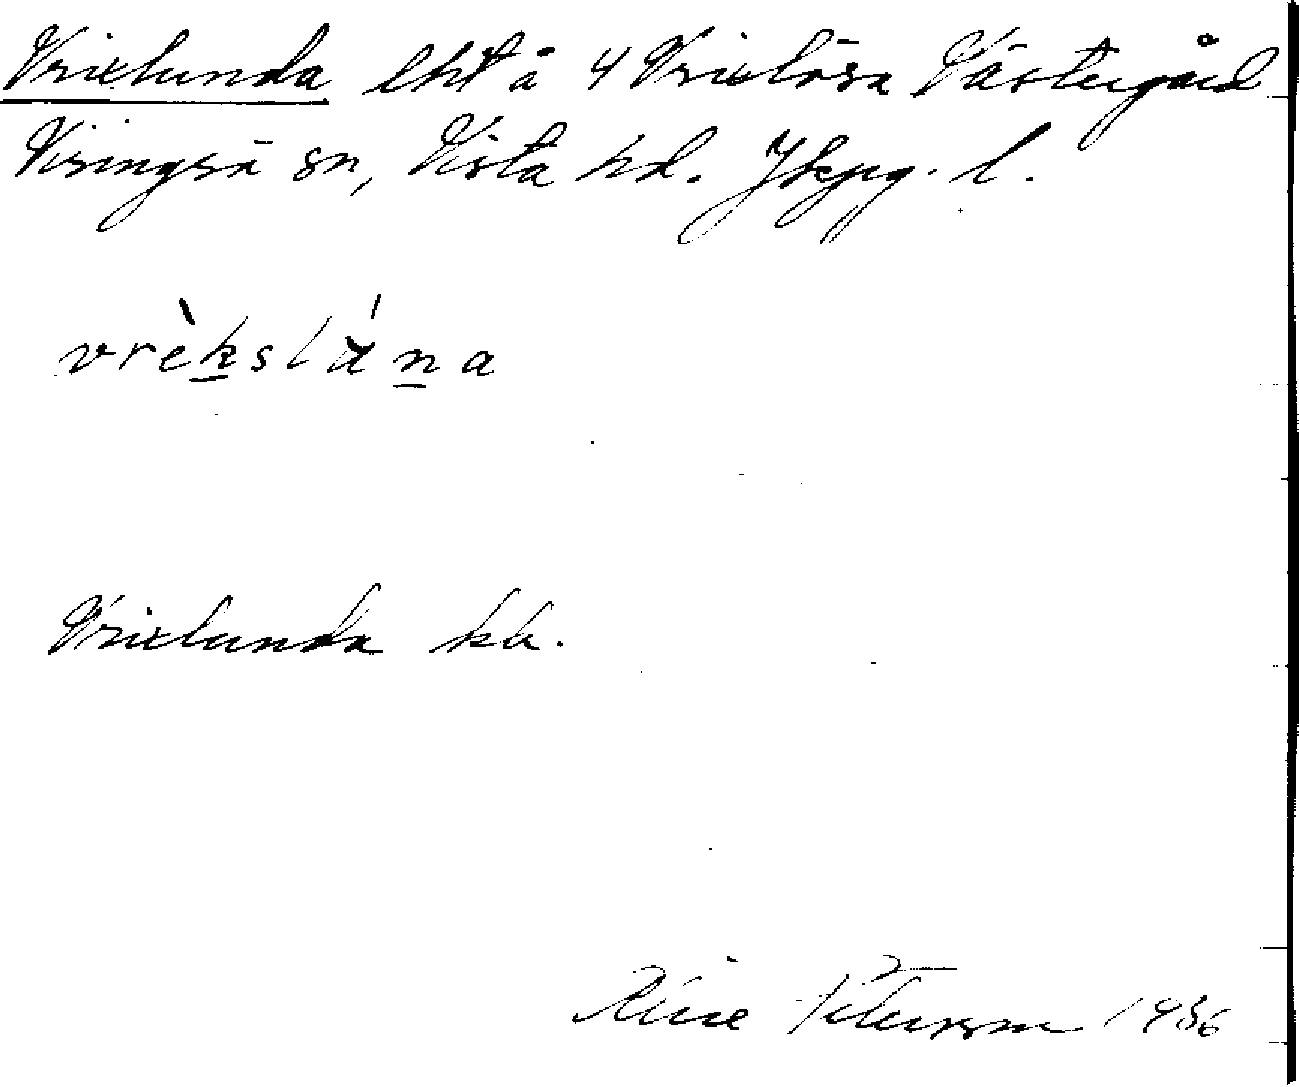 Vrixlunda lht å 4 Vrixlösa Västergård
Visingsö sn, Vista hd. Jkpg. l.
vrèkslána
Vrixlunda kb.
Petersson 1936